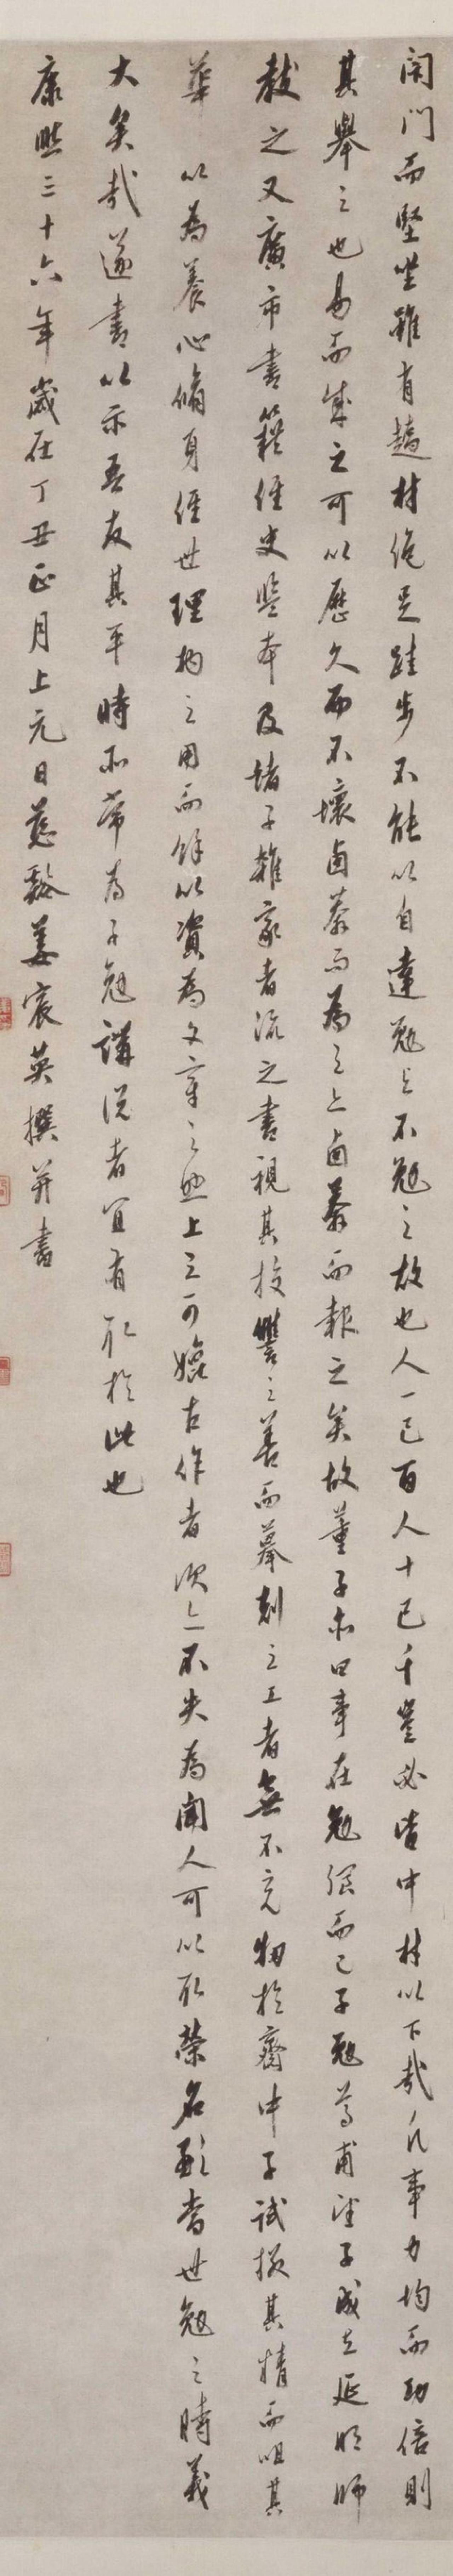 閉門而堅坐雖有趫材絕足跬步不能以自達勉與不勉之故也人一己百人十己千豈必皆中材以下哉凡事力均而功倍則
其舉之也易而成之可以歷久而不壞鹵莽而為之亦鹵莽而報之矣故董子亦曰事在勉强而已子勉尊甫望子成立延明師
教之又廣市書籍經史監本及諸子雜家者流之書視其挍讐之善而摹刻之工者無不充牣於齋中子試掇其精而咀其
華以為養心脩身經世理物之用而餘以資為文章之興上之可媲古作者次亦不失為聞人可以取榮名顯當世勉之時義
大矣哉遂書以示吾友其平時所嘗為子勉講说者宜有取於此也
康熙三十六年歲在丁丑正月上元日慈谿姜宸英撰并書